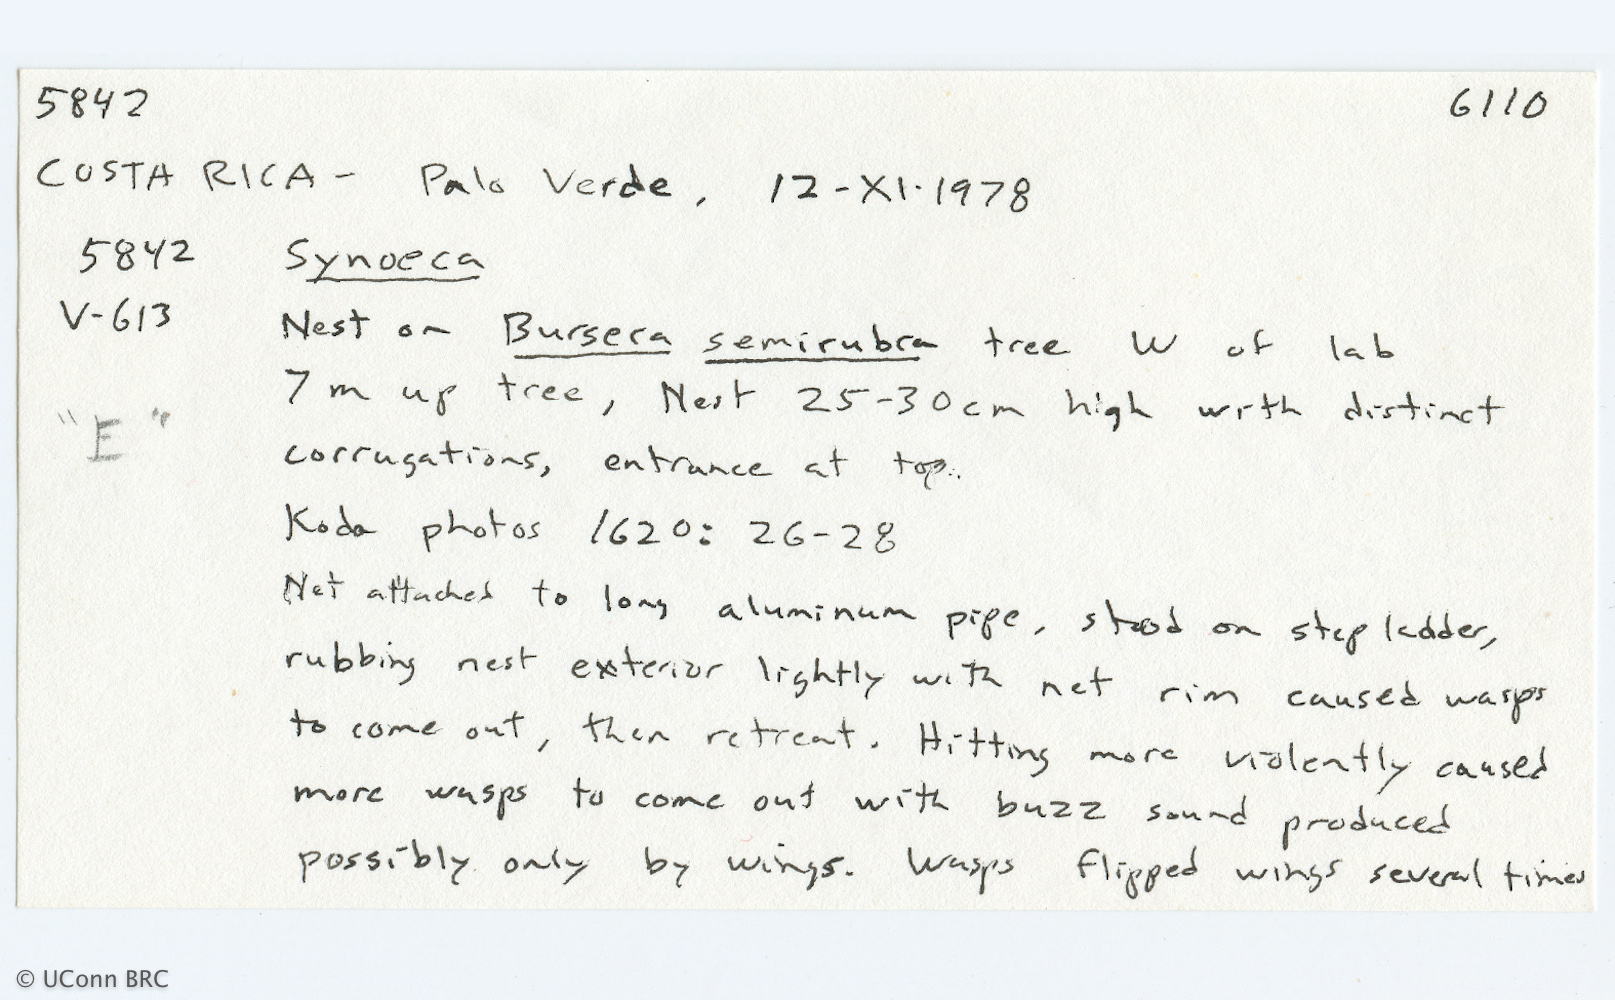 5842 6110
COSTA RICA - Palo Verde, 12-XI-1978
5842 Synoeca
V-613 Nest on Bursera semirubra tree W of lab
7m up tree, Nest 25-30cm high with distinct
"E" corrugations, entrance at top.
Koda photos 1620: 26-28
Net attached to long aluminum pipe, stood on step ladder,
rubbing nest exterior lightly with net rim caused wasps
to come out, then retreat. Hitting more violently caused
more wasps to come out with buzz sound produced
possibly only by wings. Wasps flipped wings several times
© UConn BRC